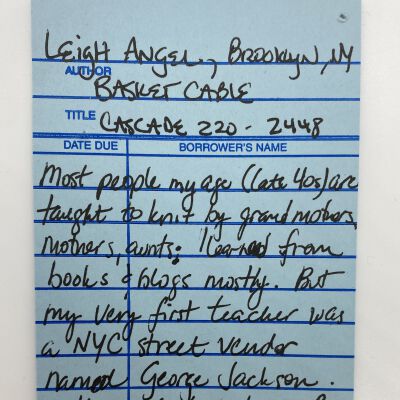 Leigh Angel, Brooklyn, NY
AUTHOR
BASKET CABLE
TITLE CASCADE 220 - 2448
DATE DUE BORROWER'S NAME
Most people my age (late 40s) are
taught to knit by grandmothers,
mothers, aunts; I learned from
books & blogs mostly. But
my very first teacher was
a NYC street vendor
named George Jackson.